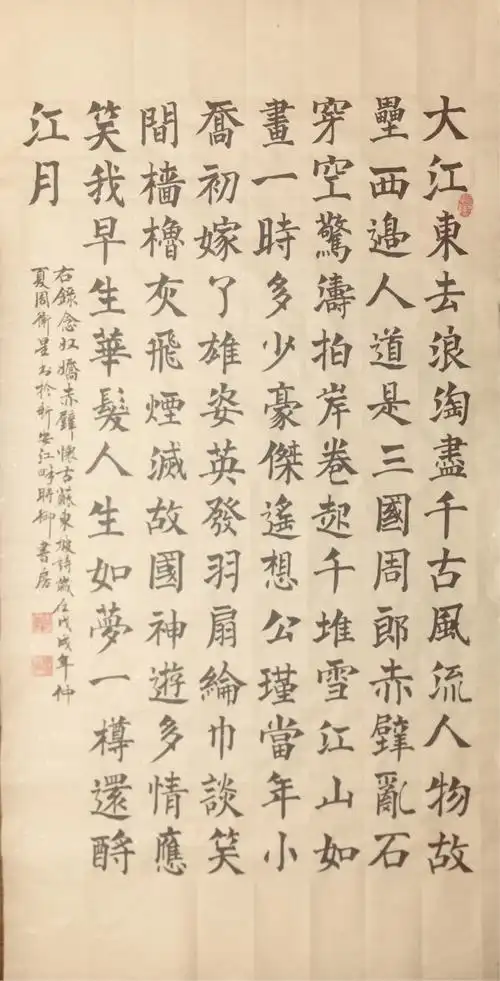 大江東去浪淘盡千古風流人物故
壘西邊人道是三國周郎赤壁亂石
穿空驚濤拍岸卷起千堆雪江山如
畫一時多少豪傑遙想公瑾當年小
喬初嫁了雄姿英發羽扇綸巾談笑
間檣櫓灰飛煙滅故國神遊多情應
笑我早生華髮人生如夢一樽還酹
江月
右錄念奴嬌赤壁懷古蘇東坡詩歲在戊戌年仲
夏周衛星书於新安江畔書房